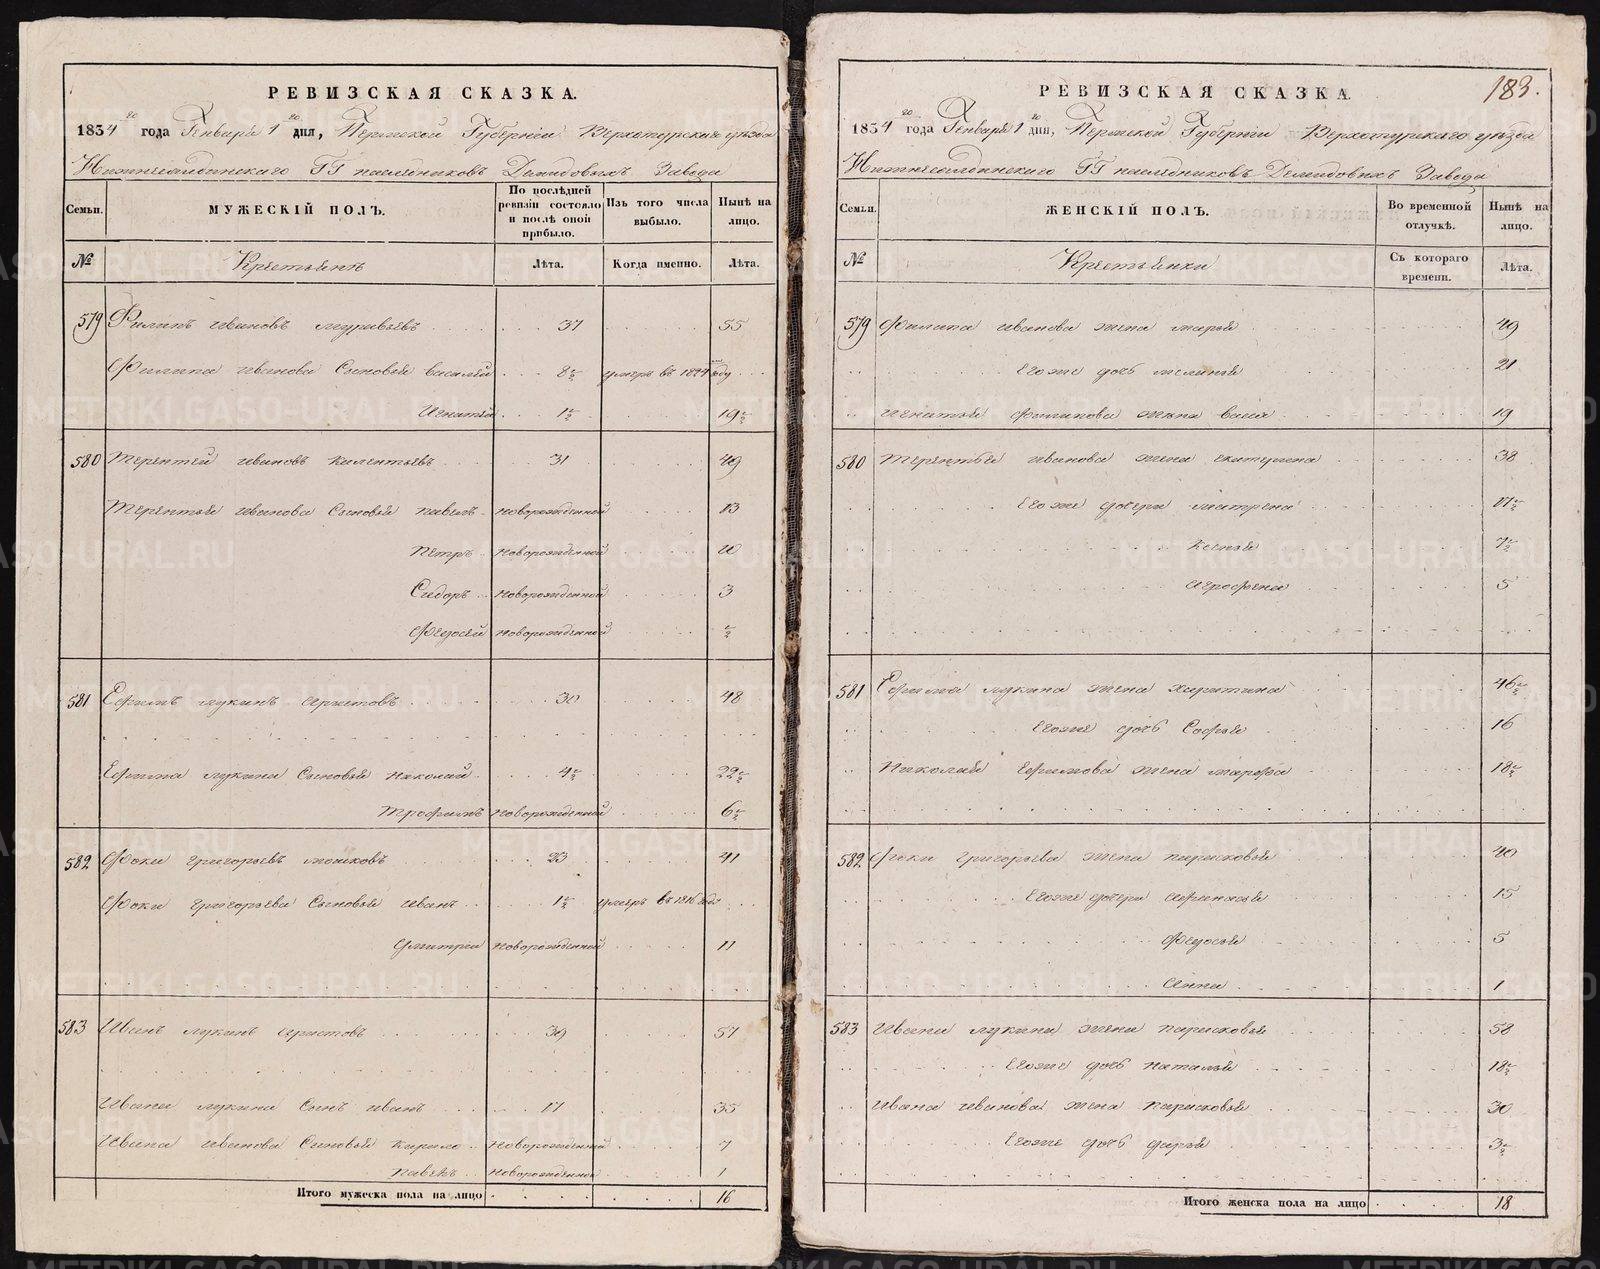 РЕВИЗСКАЯ СКАЗКА.
1834го года Генваря 1го дня, Пермской Губерніи Верхотурскаго уѣзда
Нижнесалдинскаго ГГ наслѣдниковъ Демидовыхъ Завода
Семьи. МУЖЕСКІЙ ПОЛЪ. По послѣдней ревизіи состояло и послѣ оной прибыло. Изъ того числа выбыло. Нынѣ на лицо.
№ Крестьянъ Лѣта. Когда именно. Лѣта.
579 Филипъ Ивановъ Муравьевъ 37 55
Филипа Иванова Сыновья Василей 8½ умеръ въ 1824 году
Игнатей 1½ 19½
580 Терентей Ивановъ 31 49
Терентья Иванова Сыновья Павелъ новорожденной 13
Петръ новорожденной 10
Сидоръ новорожденной 3
Федосей новорожденной ½
581 Ефимъ Лукинъ Аристовъ 30 48
Ефима Лукина Сыновья Николай 4½ 22½
Трофимъ новорожденной 6½
582 Фока Григорьевъ Мошковъ 23 41
Фоки Григорьева Сыновья Иванъ 1½ умеръ въ 1816 году
Дмитрей новорожденной 11
583 Иванъ Лукинъ Аристовъ 39 57
Ивана Лукина Сынъ Иванъ 17 35
Ивана Иванова Сыновья Кирило новорожденной 7
Павелъ новорожденной 1
Итого мужеска пола на лицо 16
183.
РЕВИЗСКАЯ СКАЗКА.
1834го года Генваря 1го дня, Пермской Губерніи Верхотурскаго уѣзда
Нижнесалдинскаго ГГ наслѣдниковъ Демидовыхъ Завода
Семьи. ЖЕНСКІЙ ПОЛЪ. Во временной отлучкѣ. Нынѣ на лицо.
№ Крестьянки Съ котораго времени. Лѣта.
579 Филипа Иванова жена Марья 49
Егоже дочь 21
Игнатья Филипова жена 19
580 Терентья Иванова жена Екатерина 38
Егоже дочери Матрена 17½
Ксенья 7½
Аграфена 5
581 Ефима Лукина жена Харитина 46½
Егоже дочь Софья 16
Николая Ефимова жена Марфа 18½
582 Фоки Григорьева жена Парасковья 40
Егоже дочери Афанасья 15
Федосья 5
Анна 1
583 Ивана Лукина жена Парасковья 58
Егоже дочь Наталья 18½
Ивана Иванова жена Парасковья 30
Егоже дочь Дарья 3½
Итого женска пола на лицо 18
METRIKI.GASO-URAL.RU